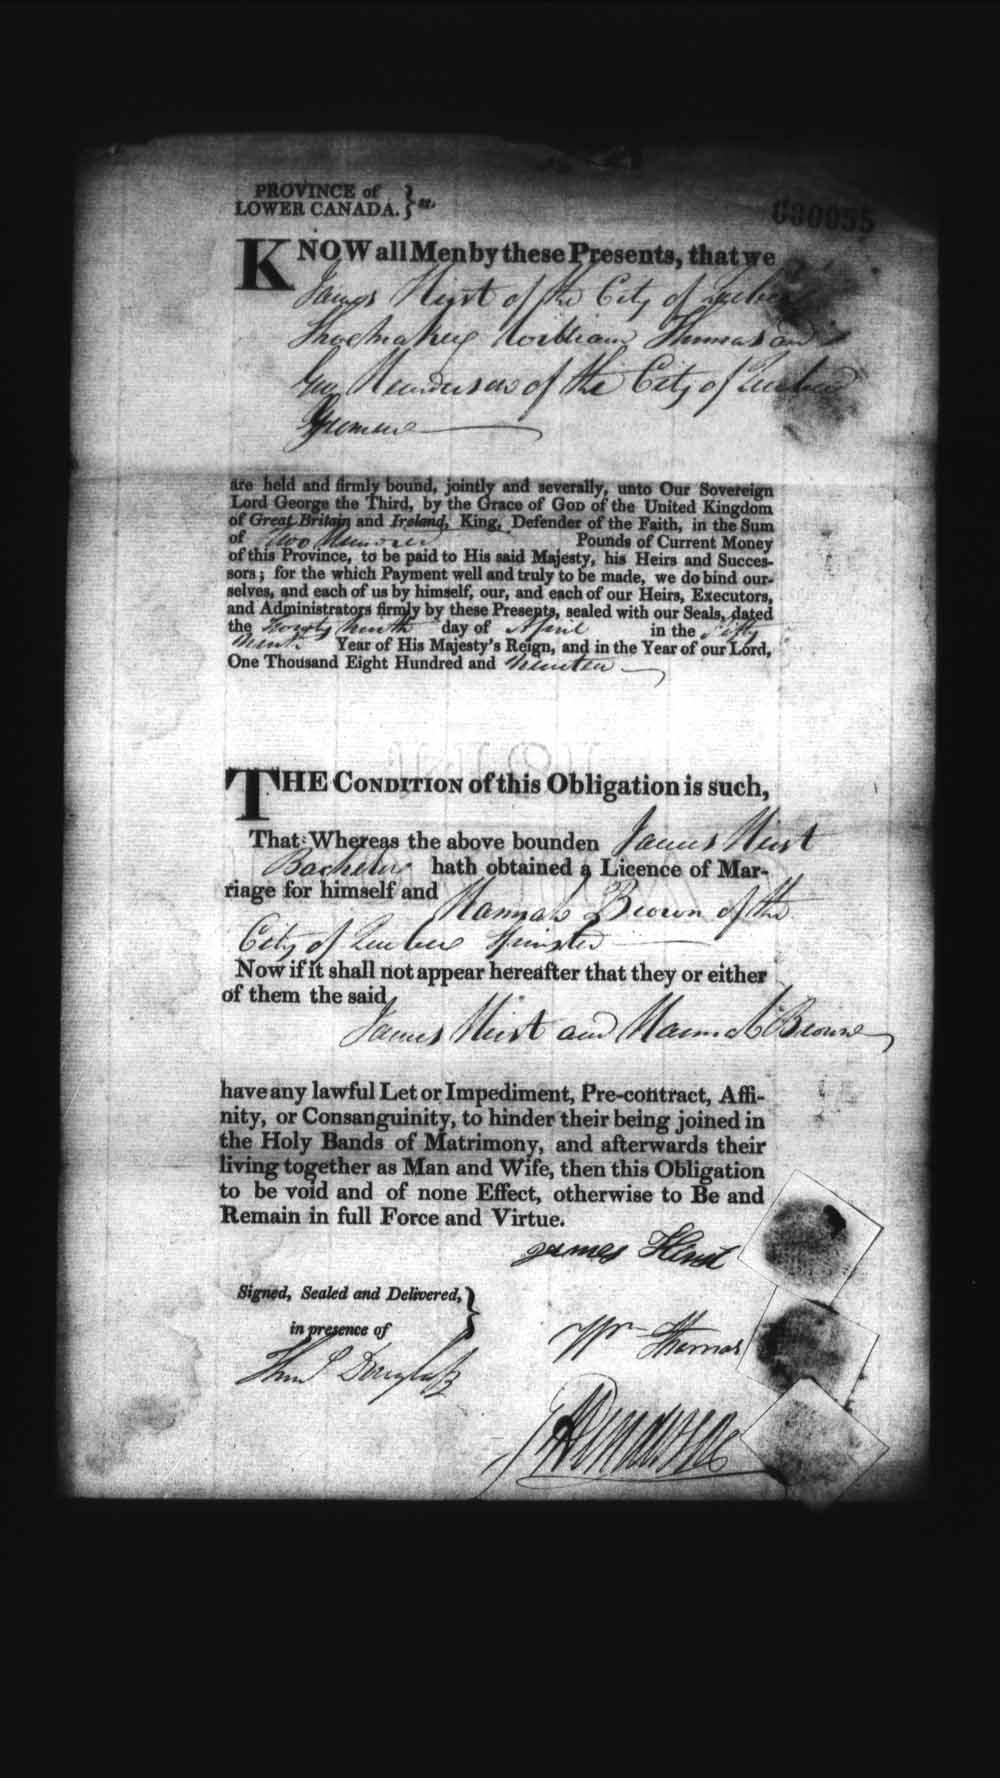 PROVINCE of
LOWER CANADA. } ss.
KNOW all Men by these Presents, that we
James Hirst of the City of Quebec
Shoemaker William Thomas and
Geo Henderson of the City of Quebec
Yeomen
are held and firmly bound, jointly and severally, unto Our Sovereign
Lord George the Third, by the Grace of GOD of the United Kingdom
of Great Britain and Ireland, King, Defender of the Faith, in the Sum
of Two Hundred Pounds of Current Money
of this Province, to be paid to His said Majesty, his Heirs and Succes-
sors; for the which Payment well and truly to be made, we do bind our-
selves, and each of us by himself, our, and each of our Heirs, Executors,
and Administrators firmly by these Presents, sealed with our Seals, dated
the Twenty Ninth day of April in the Fifty
Ninth Year of His Majesty's Reign, and in the Year of our Lord,
One Thousand Eight Hundred and Nineteen
THE CONDITION of this Obligation is such,
That Whereas the above bounden James Hirst
Bachelor hath obtained a Licence of Mar-
riage for himself and Hannah Brown of the
City of Quebec Spinster
Now if it shall not appear hereafter that they or either
of them the said
James Hirst and Hannah Brown
have any lawful Let or Impediment, Pre-contract, Affi-
nity, or Consanguinity, to hinder their being joined in
the Holy Bands of Matrimony, and afterwards their
living together as Man and Wife, then this Obligation
to be void and of none Effect, otherwise to Be and
Remain in full Force and Virtue.
James Hirst
Signed, Sealed and Delivered, }
in presence of
Wm Thomas
Douglass